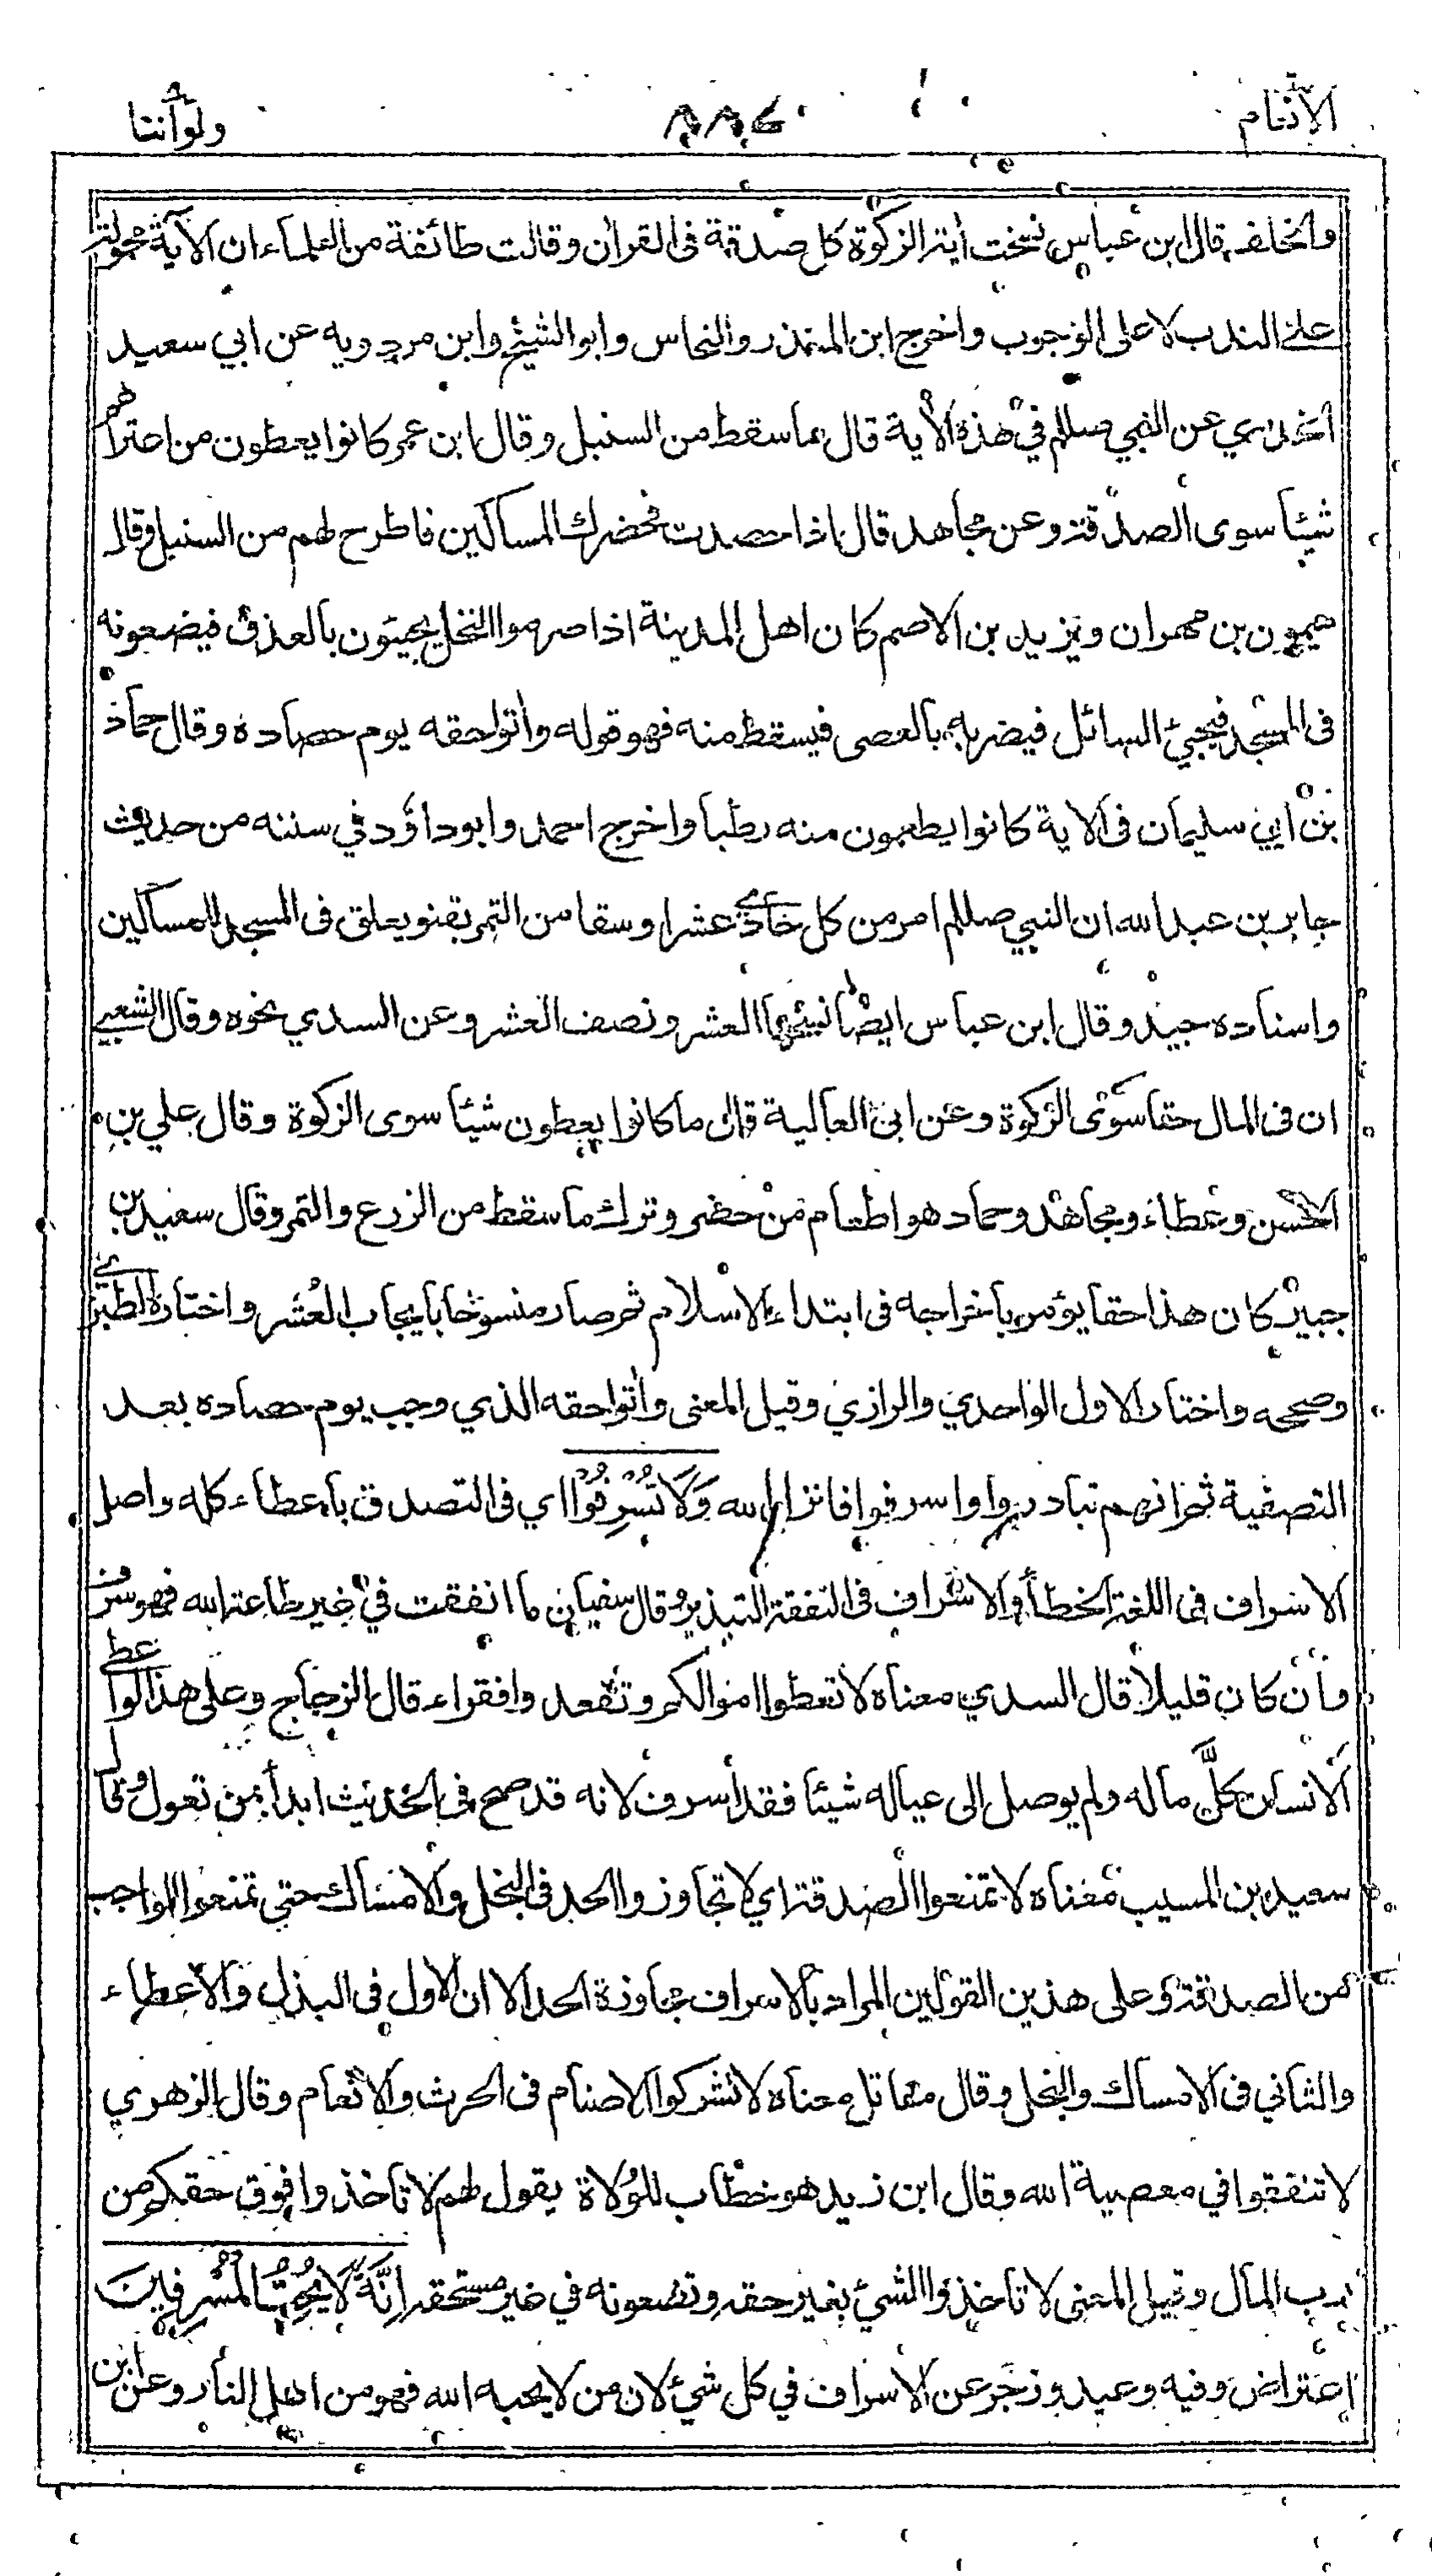 الانعام
ولو اننا
والخلف قال ابن عباس نسخت أية الزكوة كل صدقة فى القران وقالت طائفة من العلماء ان الآية محمولة
على الندب لا على الوجوب واخرج ابن المنذر والنحاس وابو الشيخ وابن مردويه عن ابي سعيد
الخدري عن النبي صللم في هذه الأية قال ما سقط من السنبل وقال ابن عمر كانوا يعطون من اعتراهم
شيئا سوى الصدقة وعن مجاهد قال اذا حصدت فحضرك المساكين فاطرح لهم من السنبل وقال
ميمون بن مهران ويزيد بن الاصم كان اهل المدينة اذا صرموا النخل يجيئون بالعذق فيضعونه
فى المسجد فيجيئ السائل فيضربه بالعصى فيسقط منه فهو قوله واٰتوا حقه يوم حصاده وقال حماد
بن أبي سليمان فى الاية كانوا يطعمون منه رطبا واخرج احمد وابو داؤد في سننه من حديث
جابر بن عبد الله ان النبي صللم امر من كل جادّ عشرا وسقا من التمر بقنو يعلق فى المسجد للمساكين
واسناده جيد وقال ابن عباس ايضا نسخها العشر ونصف العشر وعن السدي نحوه وقال الشعبي
ان فى المال حقا سوى الزكوة وعن ابي العالية قال ما كانوا يعطون شيئا سوى الزكوة وقال علي بن
الحسن وعطاء ومجاهد وحماد هو اطعام من حضر وترك ما سقط من الزرع والتمر وقال سعيد بن
جبير كان هذا حقا يؤمر باخراجه فى ابتداء الاسلام ثم صار منسوخا بايجاب العُشر واختاره الطبري
وصححه واختار الاول الواحدي والرازي وقيل المعنى واٰتوا حقه الذي وجب يوم حصاده بعد
التصفية ثم انهم تبادروا واسرفوا فانزل الله وَلَا تُسْرِفُوْا اي فى التصدق باعطاء كله واصل
الاسراف فى اللغة الخطأ والاسراف فى النفقة التبذير وقال سفيان ما انفقت في غير طاعة الله فهو سرف
وأن كان قليلا قال السدي معناه لا تعطوا اموالكم وتقعدوا فقراء قال الزجاج وعلى هذا لو اعطى
الانسان كلَّ ماله ولم يوصل الى عياله شيئا فقد أسرف لانه قد صح فى الحديث ابدأ بمن تعول وقال
سعيد بن المسيب معناه لا تمنعوا الصدقة اي لا تجاوزوا الحد فى البخل والامساك حتى تمنعوا الواجب
من الصدقة وعلى هذين القولين المراد بالاسراف مجاوزة الحد الا ان الاول فى البذل والاعطاء
والثاني فى الامساك والبخل وقال مقاتل معناه لا تشركوا الاصنام فى الحرث والانعام وقال الزهري
لا تنفقوا في معصية الله وقال ابن زيد هو خطاب للوُلاة يقول لهم لا تاخذوا فوق حقكم من
رب المال وقيل المعنى لا تاخذوا الشيئ بغير حقه وتضعونه في غير مستحقه اِنَّهٗ لَا يُحِبُّ الْمُسْرِفِيْنَ
اعتراض وفيه وعيد وزجر عن الاسراف في كل شيئ لان من لا يحبه الله فهو من اهل النار وعن ابن